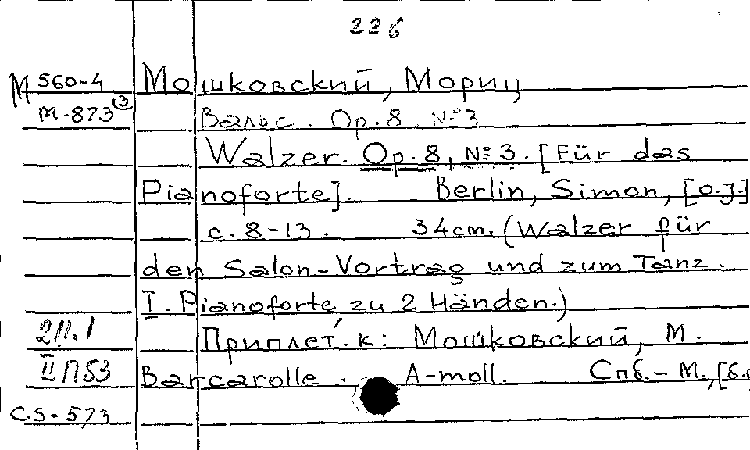 226
М 560-4 Мошковский, Мориц
М-873 ③ Вальс. Op. 8. №3
Walzer. Op. 8, №3. [Für das
Pianoforte]. Berlin, Simon, [o.J.]
с. 8-13. 34cm. (Walzer für
den Salon-Vortrag und zum Tanz.
I. Pianoforte zu 2 Händen.)
2П.1 Приплет. к: Мошковский, М.
II П53 Barcarolle. A-moll. Спб.-М., [б.
C.S-573